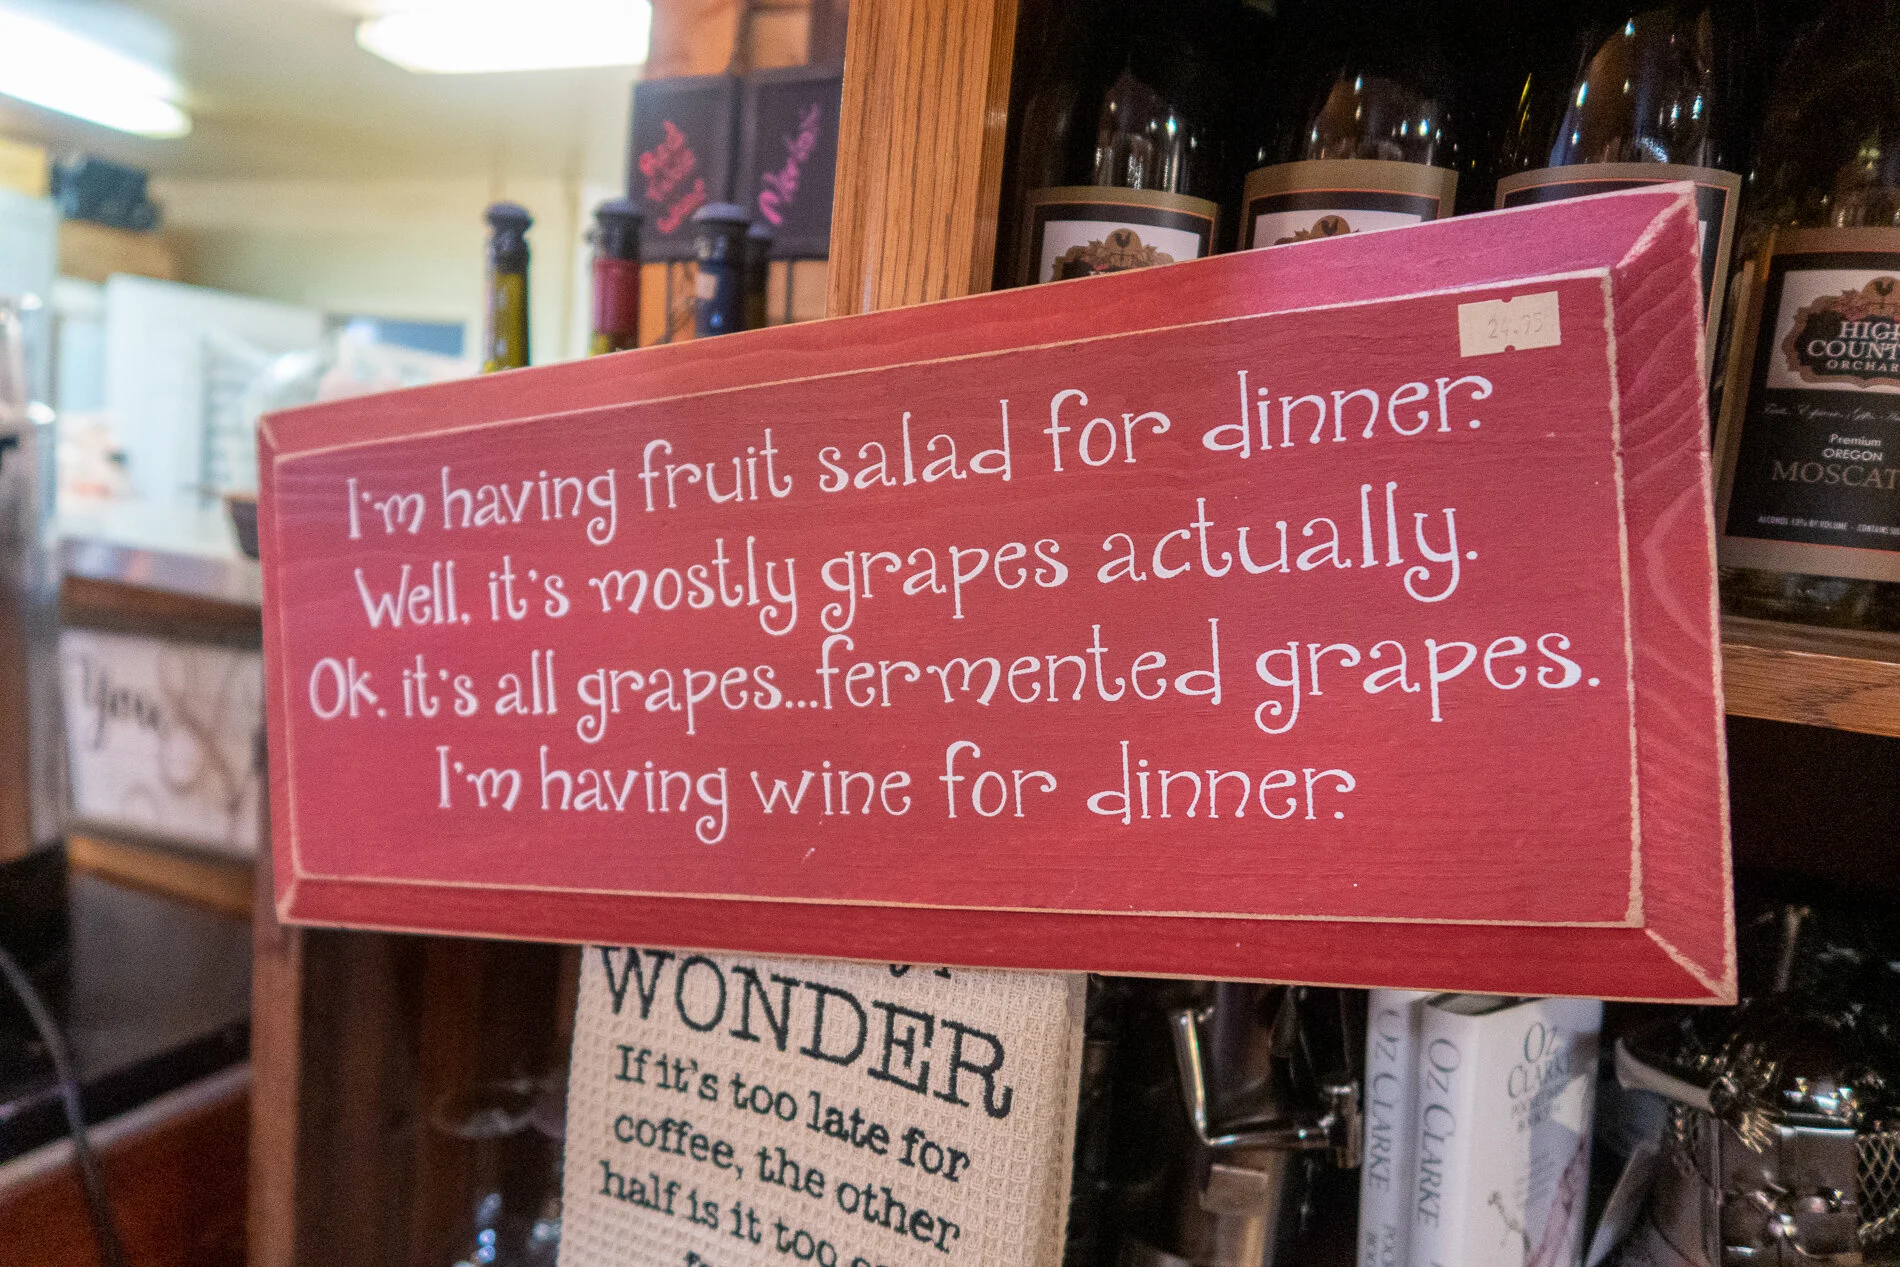 I'm having fruit salad for dinner.
Well, it's mostly grapes actually.
Ok, it's all grapes...fermented grapes.
I'm having wine for dinner.
24.95
HIGH
COUNT
ORCHAR
Premium
OREGON
MOSCAT
You
WONDER
If it's too late for
coffee, the other
half is it too
OZ CLARKE
OZ CLARKE
OZ
CLARKE